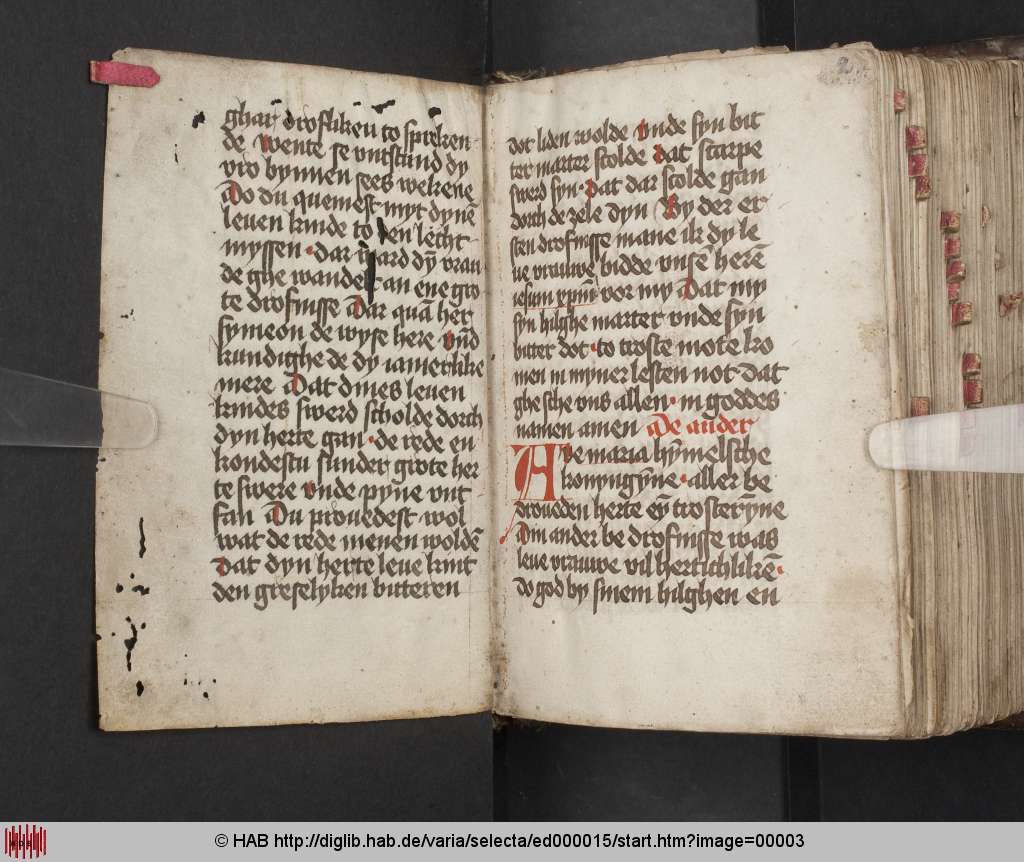 ghar drofliken to spreken
de wente se vntstund dy
vro bynnen sees weken
Do du quemest myt dynē
leuen kinde to den lecht
myssen · dar ward dy vrau
de ghe wandelt an ene gro
te drofnisse Dar quā her
symeon de wyse here vn̄d
kundighe de dy iamerlike
mere Dat dines leuen
kindes swerd scholde dorch
dyn herte gan · de rede en
kondestu sunder grote her
te swere vnde pyne vnt
fan Du prouedest wol
wat de rede menen woldē
Dat dyn herte leue kint
den greselyken bitteren
2
dot liden wolde vnde syn bit
ter marter scolde dat scarpe
swerd syn · Dat dar scolde gan
dorch de zele dyn By der er
sten drofnisse mane ik dy le
ue vrauwē bidde vnsē herē
iesum xpm̄ vor my Dat my
syn hilghe marter vnde syn
bitter dot · to troste mote ko
men in myner lesten not dat
ghe sche vns allen · in goddes
namen amen De ander
Aue maria hȳmelsche
konyngȳne · aller be
droueden herte eȳ trosterȳne
Dm ander be drofnisse was
leue vrauwe vil hertichlikē ·
do god by sinem hilghen en
© HAB http://diglib.hab.de/varia/selecta/ed000015/start.htm?image=00003